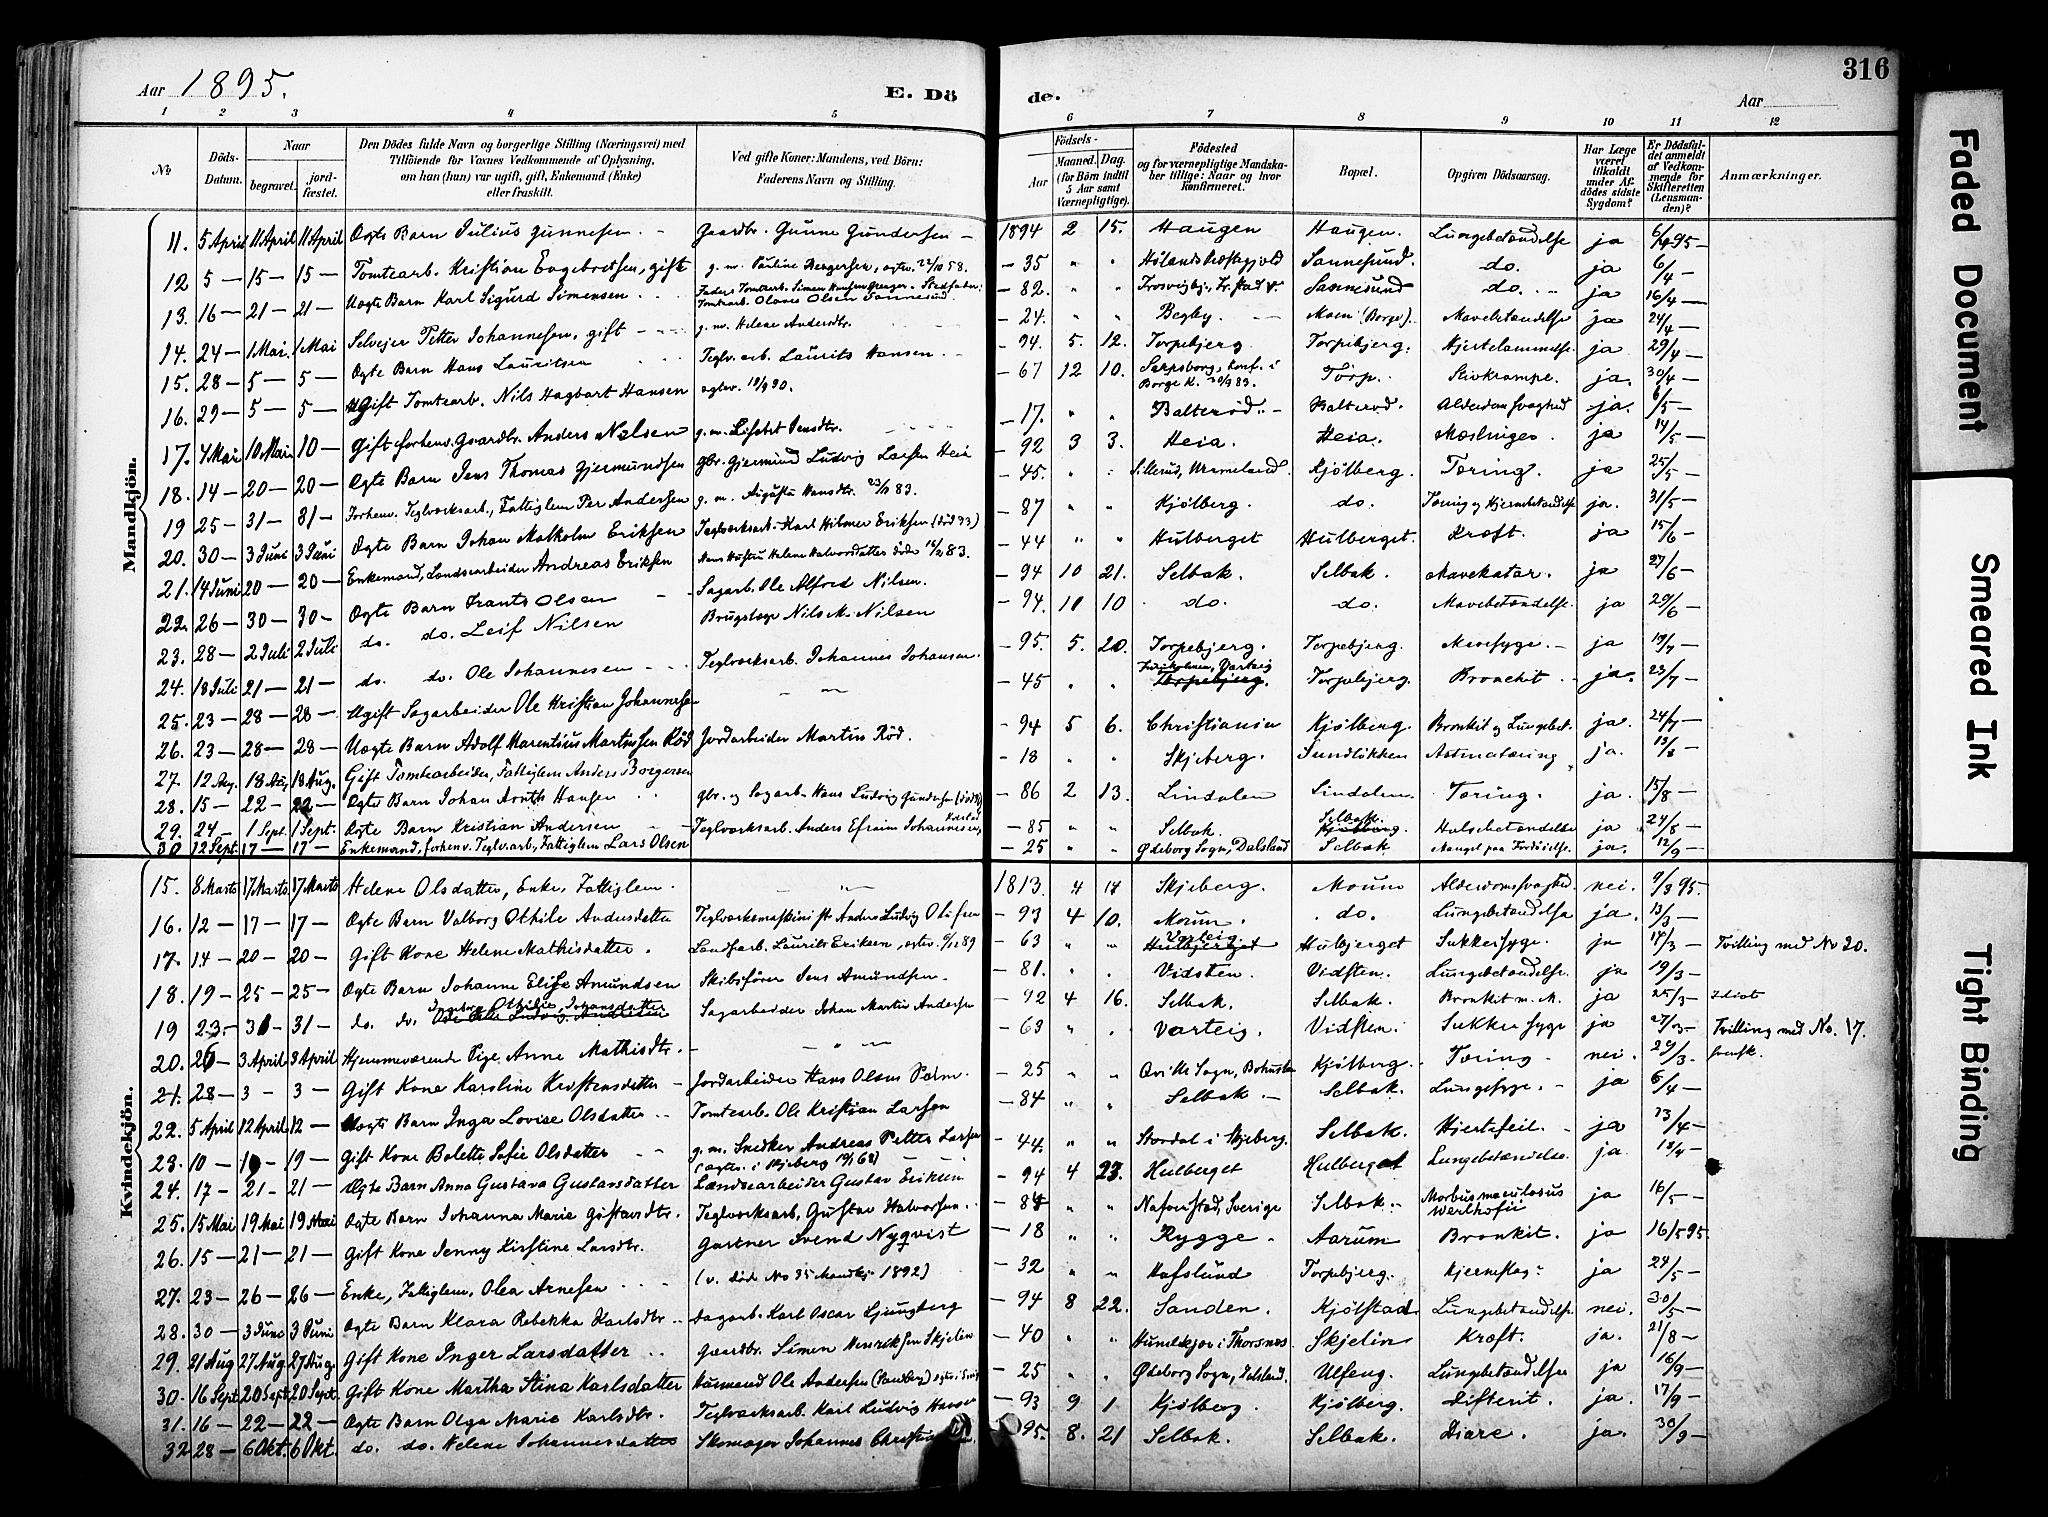 316
Aar 1895.
E. Döde.
Aar
1 2 3 4 5 6 7 8 9 10 11 12
No
Döds-Datum.
Naar
begravet.
jord-fæstet.
Den Dödes fulde Navn og borgerlige Stilling (Næringsvei) med
Tilföiende for Voxnes Vedkommende af Oplysning,
om han (hun) var ugift, gift, Enkemand (Enke)
eller fraskilt.
Ved gifte Koner: Mandens, ved Börn:
Faderens Navn og Stilling.
Födsels-
Aar
Maaned.
Dag.
(for Börn indtil
5 Aar samt
Værnepligtige).
Födested
og for værnepligtige Mandska-
ber tillige: Naar og hvor
konfirmeret.
Bopæl.
Opgiven Dödsaarsag.
Har Læge
været
tilkaldt
under Af-
dödes sidste
Sygdom?
Er Dödsfal-
det anmeldt
af Vedkom-
mende for
Skifteretten
(Lensman-
den)?
Anmærkninger.
Mandkjön.
11. 5 April 11 April 11 April Ægte Barn Julius Gunnesen Gaardbr. Gunne Gundersen 1894 2 15. Haugen Haugen. Lungebetændelse ja 6/4 95
12 5 — 15 — 15 — Tomtearb. Kristian Engebretsen, gift — 35 " " Sannesund. do. ja 6/4 —
13. 16 — 21 — 21 — Uægte Barn Karl Sigurd Simensen — 82. " " Sannesund do. ja 16/4 —
14. 24 — 1 Mai. 1 Mai Selveier Petter Johannesen, gift g. m. Helene Andersdtr. — 24. " " Begby. Moen (Borge). Mavebetændelse ja 24/4 —
15. 28 — 5 — 5 — Ægte Barn Hans Lauritsen Teglv. arb. Laurits Hansen — 94. 5. 12. Torpebjerg Torpebjerg. Hjertelammelse. ja 29/4 —
16. 29 — 5 — 5 — Ugift Tomtearb. Nils Hagbart Hansen — 67 12 10. Sarpsborg, konf. i Borge K. Torp. Stivkrampe. ja. 30/4 —
17. 4 Mai 10 Mai 10 — Gift forhenv. Gaardbr. Anders Nilsen — 17. " " Balterød Balterød. Alderdomsvaghed ja. 6/5 —
18. 14 — 20 — 20 — Ægte Barn Jens Thomas Gjermundsen gbr. Gjermund Ludvig Larsen Heia — 92 3 3. Heia. Heia. Mæslinger. ja 14/5 —
19 25 — 31 — 31 — Forhenv. Teglværksarb., Fattiglem Per Andersen g. m. Augusta Hansdtr. 83. — 45. " " Kjølberg. Tæring. ja 25/5 —
20. 30 — 3 Juni 3 Juni Ægte Barn Johan Malkolm Eriksen Teglværksarb. Karl Hilmer Eriksen (död 93) — 87 " " Kjølberg. do. Tæring og Hjernebetændelse ja. 31/5 —
21. 14 Juni 20 — 20 — Enkemand, Landsarbeider Andreas Eriksen Hans Hustru Helene Halvorsdatter döde 83. — 44 " " Hulberget Hulberget. Kræft. ja 15/6 —
22. 26 — 30 — 30 — Ægte Barn Frants Olsen Sagarb. Ole Alfred Nilsen. — 94 10 21. Selbak. Selbak. Mavekatar. ja 27/6 —
23. 28 — 2 Juli 2 Juli do. do. Leif Nilsen Nilsen — 94. 11 10 do. do. Mavebetændelse. ja 29/6 —
24. 18 Juli 21 — 21 — do. do. Ole Johannesen Teglværksarb. Johannes Johansen. — 95. 5. 20. Torpebjerg. Torpebjerg. Mavesyge. ja 19/7 —
25. 23 — 28 — 28 — Ugift Sagarbeider Ole Kristian Johannesen — 45 " " Torpebjerg. Torpebjerg. Bronchit ja. 23/7 —
26. 23 — 28 — 28 — Uægte Barn Adolf Marentius Martinsen Röd Jordarbeider Martin Röd. — 94 5 6. Christiania Kjølberg Bronkit og Lungebet. ja. 24/7 —
27. 12 Aug. 18 Aug. 18 Aug. Gift Tomtearbeider, Fattiglem Anders Borgersen — 18 " " Skjeberg. Sundlökken ja. 13/8 —
28. 15 — 22 — 22 — Ægte Barn Johan Hansen gbr. og Sagarb. Hans Ludvig Gundersen — 86 2 13. Lindalen Lindalen. Tæring. ja. 15/8 —
29. 24 — 1 Sept. 1 Sept. Ægte Barn Kristian Andersen Teglværksarb. Anders Efraim Johannesen — 85 " " Selbak. Selbak. Kjølberg. Halsebetændelse ja 24/8 —
30 12 Sept. 17 — 17 — Enkemand, forhenv. Teglv. arb., Fattiglem Lars Olsen — 25 " " Ødeborg Sogn, Dalsland Selbak Mangel paa Fordøielse. ja. 12/9 —
Kvindekjön.
15. 8 Marts 17 Marts 17 Marts Helene Olsdatter, Enke, Fattiglem. 1813. 4 17 Skjeberg. Moum Alderdomssvaghed. nei. 9/3 95.
16. 12 — 17 — 17 — Ægte Barn Valborg Othile Andersdatter Teglværksmaskinist Anders Ludvig Olufsen — 93 4 10. Moum. do. Lungebetændelse ja. 13/3 —
17. 14 — 20 — 20 — Gift Kone Helene Mathisdatter. Landsarb. Laurits Eriksen — 63 " " Varteig Hulberget Hulbjerget Sukkersyge. ja 14/3 — Tvilling med No 20.
18. 19 — 25 — 25 — Ægte Barn Johanne Elise Amundsen Skibsfører Jens Amundsen — 81. " " Vidsten. Vidsten. Lungebetændelse. ja 19/3 —
19 23. — 31 — 31 — do. do. Ingeborg Othilie Johansdatter Sagarbeider Johan Martin Andersen — 92 4 16. Selbak. Selbak. Bronkit m. M. ja 25/3 — Idiot
20. 26 — 3 April 3 April Hjemmeværende Pige Anne Mathisdtr. — 63 " " Varteig. Vidsten. Sukkersyge ja 27/3 — Tvilling med No. 17.
21. 28 — 3 — 3 — Gift Kone Karoline Kristensdatter Jordarbeider Hans Olsen Palm. — 25 " " Qville Sogn, Bohuslen Kjølberg. Tæring. nei. 29/3. svensk.
22. 5 April 12 April 12 — Uægte Barn Inga Lovise Olsdatter Tomtearb. Ole Kristian Larsen — 84 " " Selbak. Selbak. Lungesyge. ja 6/4 —
23. 10 — 19 — 19 — Gift Kone Bolette Sofie Olsdatter g. m. Snedker Andreas Petter Larsen — 44. " " Stordal i Skjeberg. Selbak. Hjertefeil. ja 13/4 —
24. 17 — 21 — 21 — Ægte Barn Anna Gustava Gustavsdatter Landsarbeider Gustav Eriksen — 94 4 23. Hulberget Hulberget Lungebetændelse. ja. 18/4 —
25. 15 Mai 19 Mai 19 Mai Ægte Barn Johanna Marie Gustavsdtr. Teglværksarb. Gustav Halvorsen. — 84 " " Sverige Selbak. Morbus maculosus Werlhofii ja 16/5 —
26. 15 — 21 — 21 — Gift Kone Jenny Kirstine Larsdtr. Gartner Svend Nyqvist — 18 " " Rygge Aarum Bronkit. ja 16/5 95.
27. 23 — 26 — 26 — Enke, Fattiglem, Olea Arnesen (v. död No 35 Mandkj. 1892) — 32 " " Hafslund Torpebjerg. Hjerneslag. ja 24/5 —
28. 30 — 3 Juni 3 Juni Ægte Barn Klara Rebekka Karlsdtr Sagarb. Karl Oscar Ljungberg — 94 8 22. Sanden. Kjølstad Lungebetændelse. nei. 30/5 —
29. 21 Aug 27 Aug 27 Aug. Gift Kone Inger Larsdatter Gaardbr. Simen Henriksen Skjelin — 40 " " Thorsnes. Skjelin Kræft. ja. 21/8 —
30. 16 Sept 20 Sept. 20 Sept. Gift Kone Martha Stina Karlsdatter Husmand Ole Andersen — 25 " " Ødeborg Sogn, Dalsland. Ulfeng. Lungebetændelse ja 16/9 —
31. 16 — 22 — 22 — Ægte Barn Olga Marie Karlsdtr. Teglværksarb. Karl Ludvig Hansen — 93 9 1 Kjølberg. Kjølberg. Difterit. ja. 17/9 —
32 28 — 6 Okt. 6 Okt. do. do. Helene Johannesdatter Skomager Johannes 95. 8. 21 Selbak. Selbak. Diare. ja. 30/9 —
Faded Document
Smeared Ink
Tight Binding